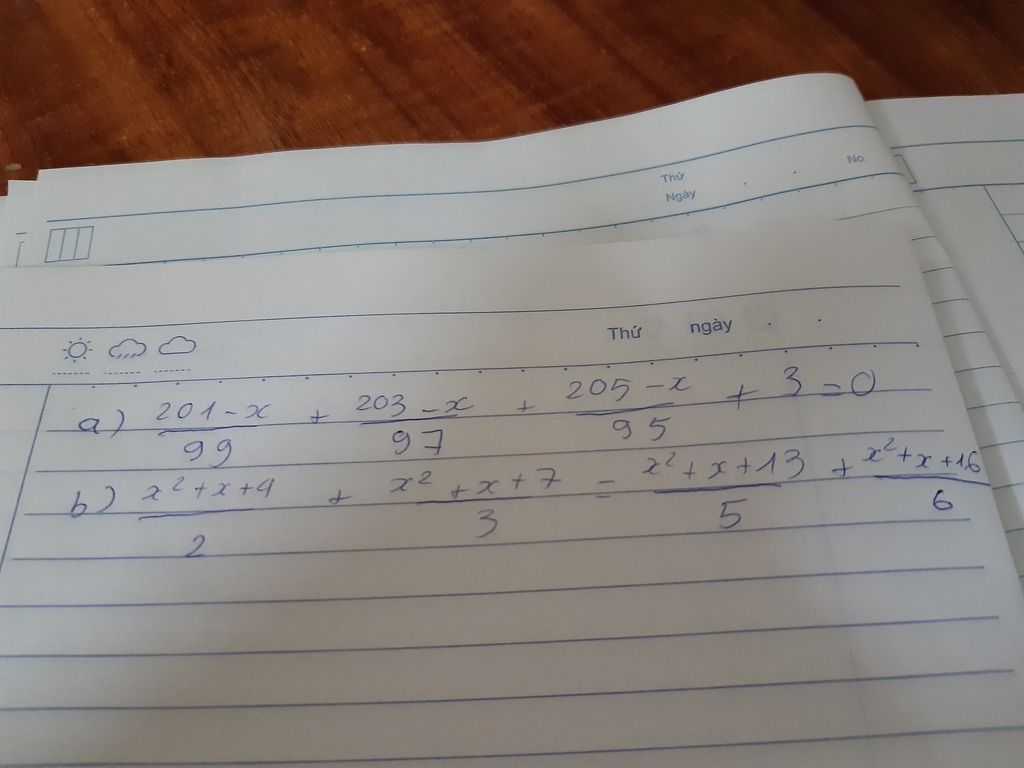 Thứ
Ngày . . No.
Thứ ngày . .
a) \frac{201-x}{99} + \frac{203-x}{97} + \frac{205-x}{95} + 3 = 0
b) \frac{x^2+x+4}{2} + \frac{x^2+x+7}{3} = \frac{x^2+x+13}{5} + \frac{x^2+x+16}{6}